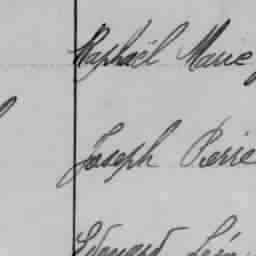 Raphaël Marie
Joseph Pierre
Edouard Léon